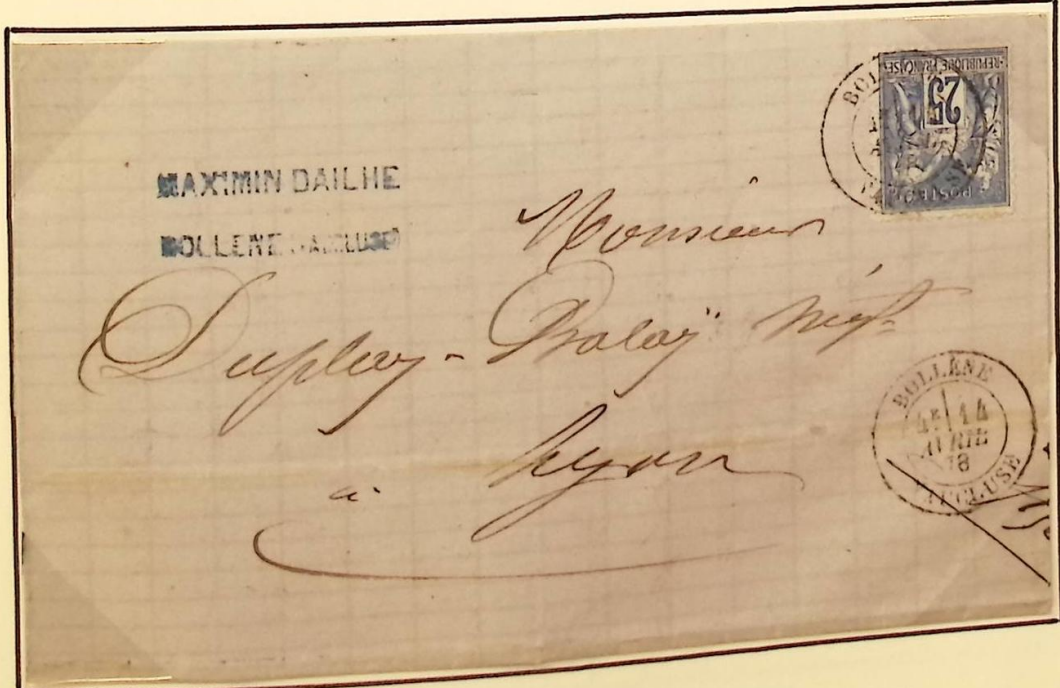 MAXIMIN DAILHE
BOLLENE (VAUCLUSE)
REPUBLIQUE FRANÇAISE
25
POSTE
BOLLÈNE
Monsieur
Duplay - Balaÿ Négt
à Lyon
BOLLÈNE
4E 14
AVRIL
78
VAUCLUSE